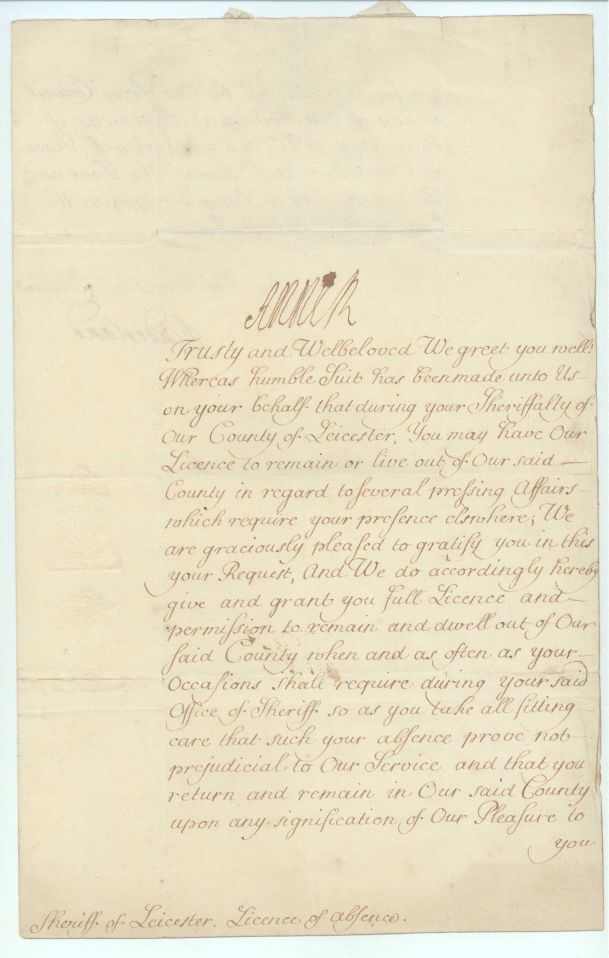 Anne R
Trusty and Welbeloved We greet you well:
Whereas humble Suit has been made unto Us
on your behalf that during your Sheriffalty of
Our County of Leicester, You may have Our
Licence to remain or live out of Our said
County in regard to several pressing Affairs
which require your presence elswhere; We
are graciously pleased to gratify you in this
your Request, And We do accordingly hereby
give and grant you full Licence and
permission to remain and dwell out of Our
said County when and as often as your
Occasions shall require during your said
Office of Sheriff so as you take all fitting
care that such your absence prove not
prejudicial to Our Service and that you
return and remain in Our said County
upon any signification of Our Pleasure to
you
Sheriff of Leicester. Licence of absence.